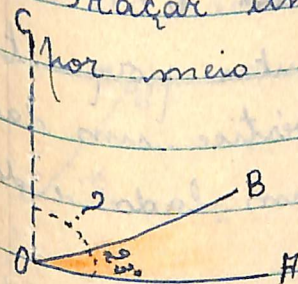 Traçar um
por meio
C
?
B
O
A